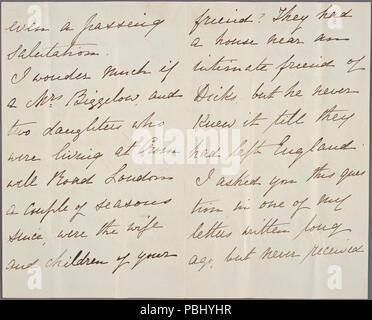 even a passing
salutation.
I wonder much if
a Mrs Bigelow, and
two daughters who
were living at Crom
well Road London
a couple of seasons
since, were the wife
and children of your
friend? They had
a house near an
intimate friend of
Dicks, but he never
knew it till they
had left England.
I asked you this ques
tion in one of my
letters written long
ago, but never received
alamy
www.alamy.com - PBHYHR